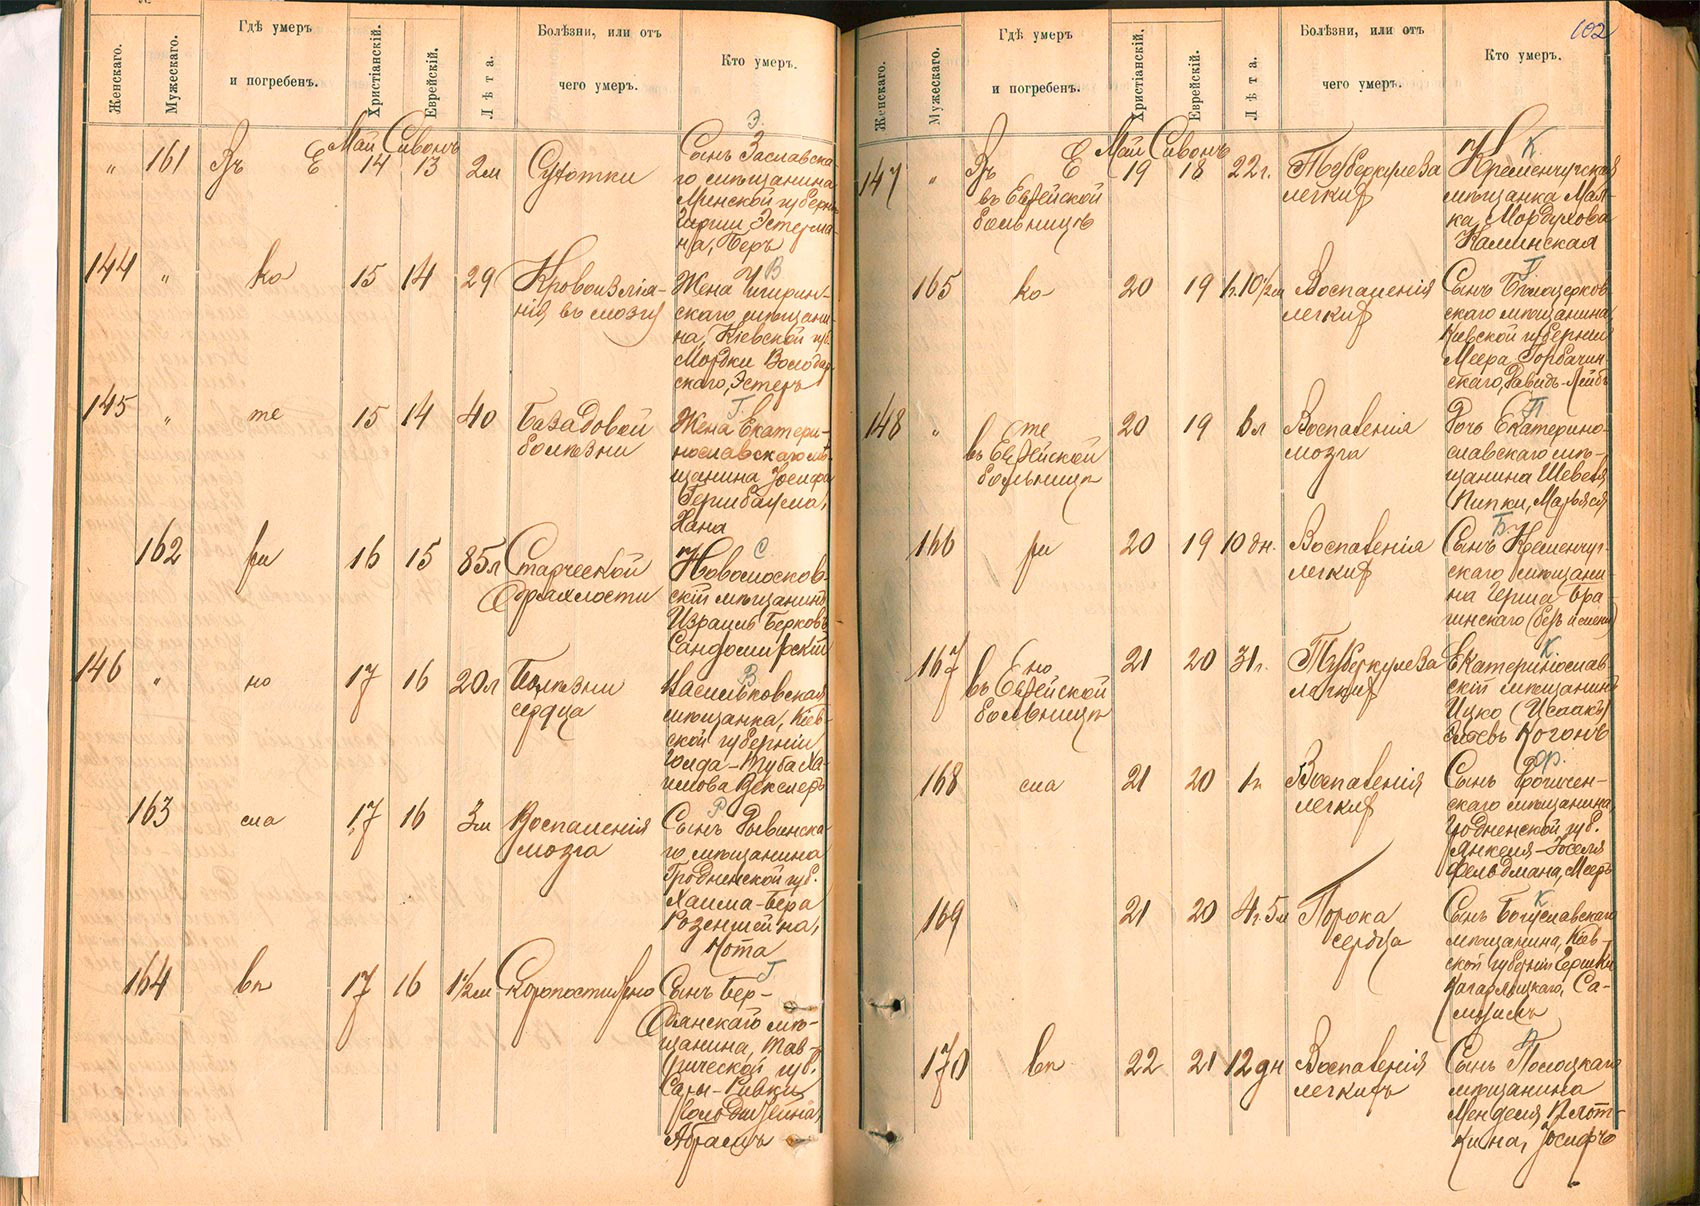 Женскаго.
Мужескаго.
Гдѣ умеръ
и погребенъ.
Христіанскій.
Еврейскій.
Лѣта.
Болѣзни, или отъ
чего умеръ.
Кто умеръ.
Май Сивонъ
Э.
„ 161 Въ Е 14 13 2м Сухотки
Сынъ Заславска
го мѣщанина
Минской губерн
Эстерма-
на, Беръ
144 „ ка 15 14 29 Кровоизлія-
нія въ мозгу
В
Жена Чигирин-
скаго мѣщани-
на, Кіевской губ.
Мордки Володар
скаго, Эстеръ
145 „ те 15 14 40 Базадовой
болѣзни
Г.
Жена Екатери-
нославскаго мѣ-
щанина Іосифа
Хана
162 ри 16 15 85л Старческой
дряхлости
С.
Новомосков-
скій мѣщанинъ
Израиль Берковъ
Сандомирскій
146 „ но 17 16 20л Болѣзни
сердца
В
Васильковская
мѣщанка, Кіев-
ской губерніи
Голда-Туба Ха-
имова Векслеръ
163 сла 17 16 3м Воспаленія
мозга
Р
Сынъ
го мѣщанина
Гродненской губ.
Хаима-Бера
Розенштейна,
Мота
164 вѣ 17 16 1½м Скоропостижно
Г
Сынъ Бер-
дянскаго мѣ-
щанина, Тав-
рической губ.
Сары-Ривки
Гольдштейна,
Абрамъ
102
Женскаго.
Мужескаго.
Гдѣ умеръ
и погребенъ.
Христіанскій.
Еврейскій.
Лѣта.
Болѣзни, или отъ
чего умеръ.
Кто умеръ.
Май Сивонъ
147 „ Въ Е 19 18 22г. Туберкулеза
въ Еврейской
больницѣ
легкихъ
К.
Кременчугская
мѣщанка Мал-
ка Мордухова
Каминская
165 ка 20 19 1г.10½м Воспаленія
легкихъ
Г.
Сынъ Бѣлоцерков
скаго мѣщанина
Кіевской губерніи
Меера Горбачин-
скаго, Давидъ-Лейбъ
148 „ те 20 19 6л Воспаленія
въ Еврейской
больницѣ
мозга
П
Дочь Екатерино-
славскаго мѣ-
щанина Шевеля
Пипки,
166 ри 20 19 10дн. Воспаленія
легкихъ
Б
Сынъ Кременчуг-
скаго мѣщани-
на Герша Бра-
гинскаго (безъ имени)
167 Е но 21 20 31г. Туберкулеза
въ Еврейской
больницѣ
легкихъ
К
Екатеринослав-
скій мѣщанинъ
Ицко (Исаакъ)
Коганъ
168 сла 21 20 1г. Воспаленія
легкихъ
Ф.
Сынъ
скаго мѣщанина,
Гродненской губ.
Янкеля-Іоселя
Фельдмана, Мееръ
169 21 20 4г.5м Порока
сердца
К
Сынъ Богуславскаго
мѣщанина, Кіев-
ской губерніи Гершки
Кагарлицкаго, Са-
муилъ
170 вѣ 22 21 12дн Воспаленія
легкихъ
П
Сынъ Полоцкаго
мѣщанина
Менделя Плот-
кина, Іосифъ